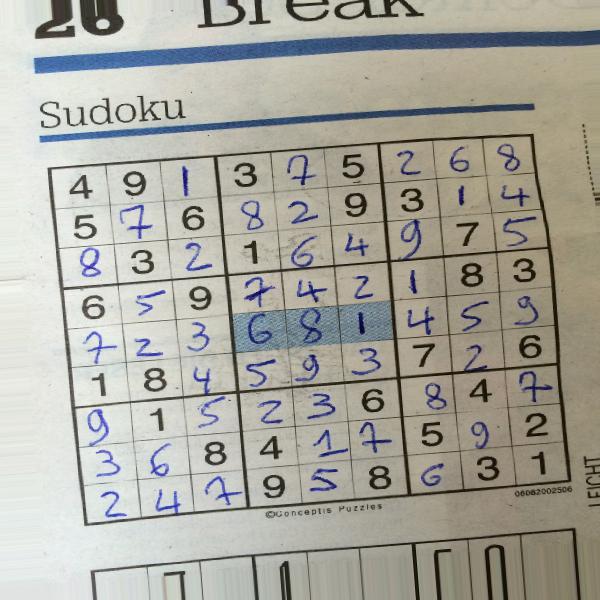 Break
Sudoku
4 9 1 3 7 5 2 6 8
5 7 6 8 2 9 3 1 4
8 3 2 1 6 4 9 7 5
6 5 9 7 4 2 1 8 3
7 2 3 6 8 1 4 5 9
1 8 4 5 9 3 7 2 6
9 1 5 2 3 6 8 4 7
3 6 8 4 1 7 5 9 2
2 4 7 9 5 8 6 3 1
©Conceptis Puzzles
06082002506
LEICHT